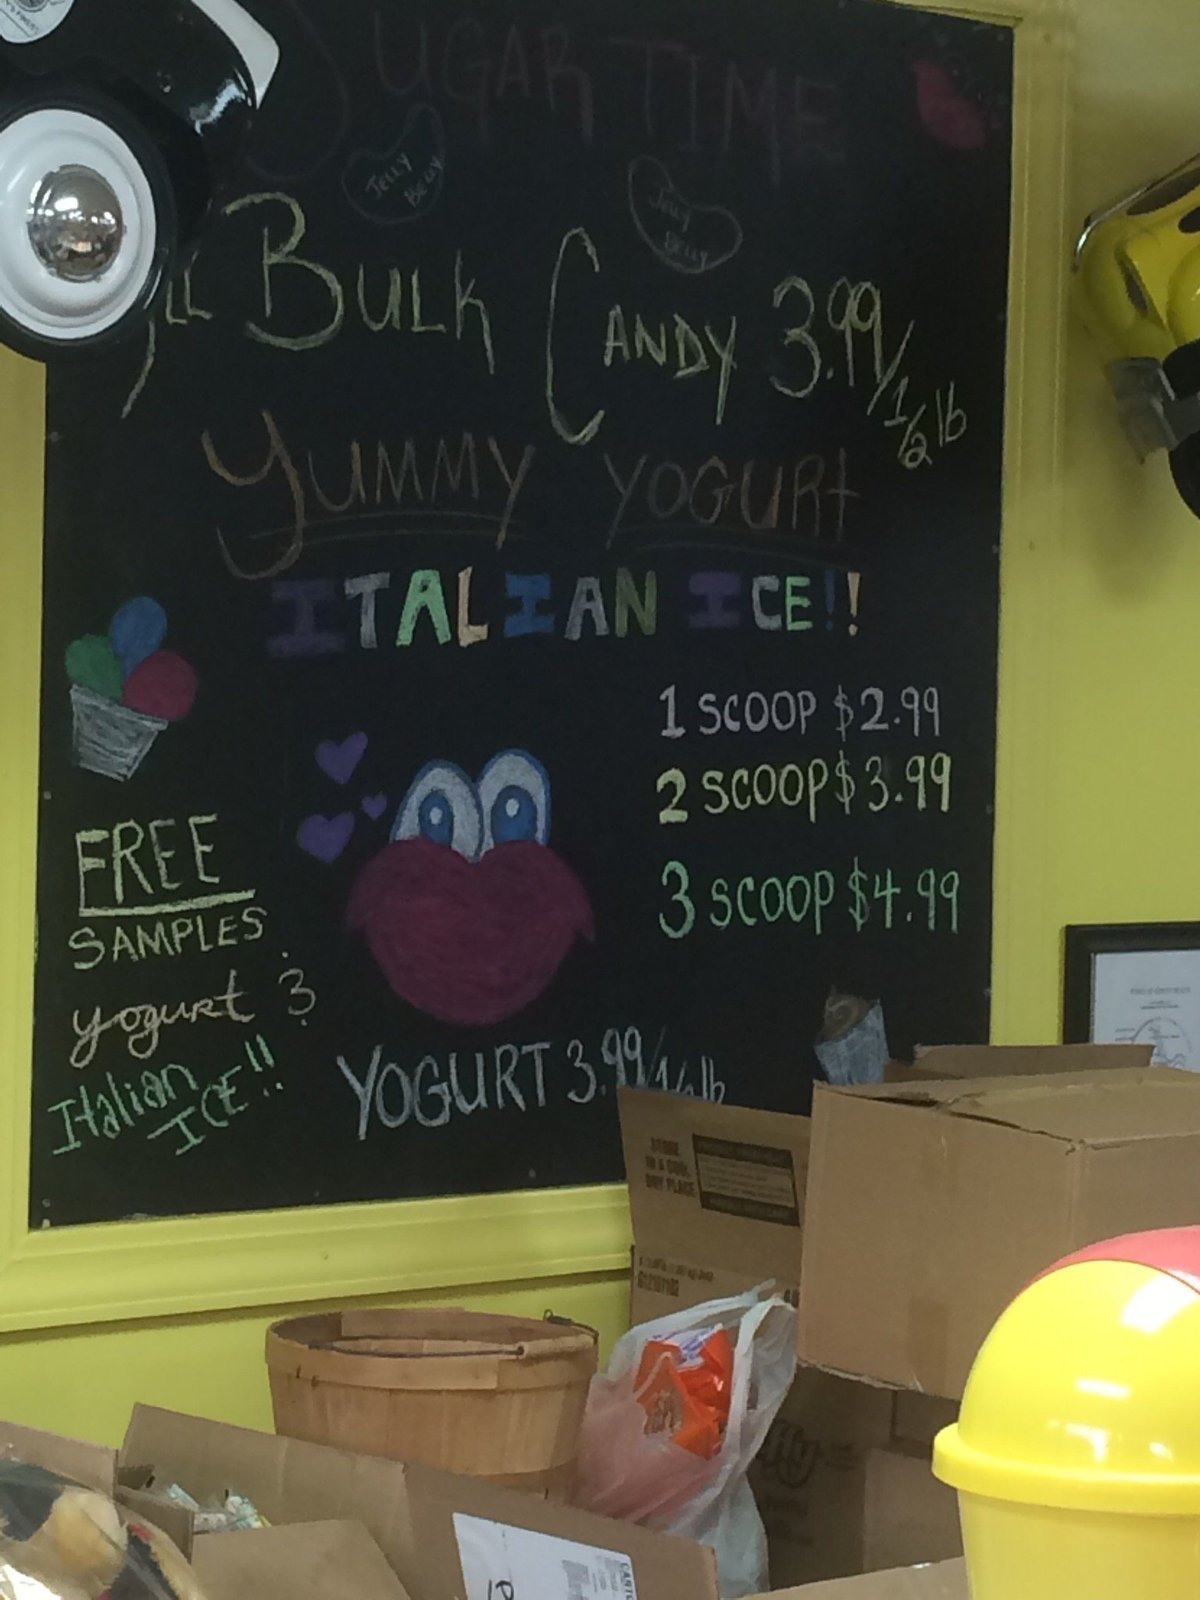 SUGAR TIME
JELLY BELLY
JELLY BELLY
BULK CANDY 3.99/1/2 lb
YUMMY YOGURT
ITALIAN ICE!!
1 SCOOP $2.99
2 SCOOP $3.99
3 SCOOP $4.99
FREE
SAMPLES
yogurt &
Italian
ICE!!
YOGURT 3.99/1/2 lb
STORE
IN A COOL
DRY PLACE